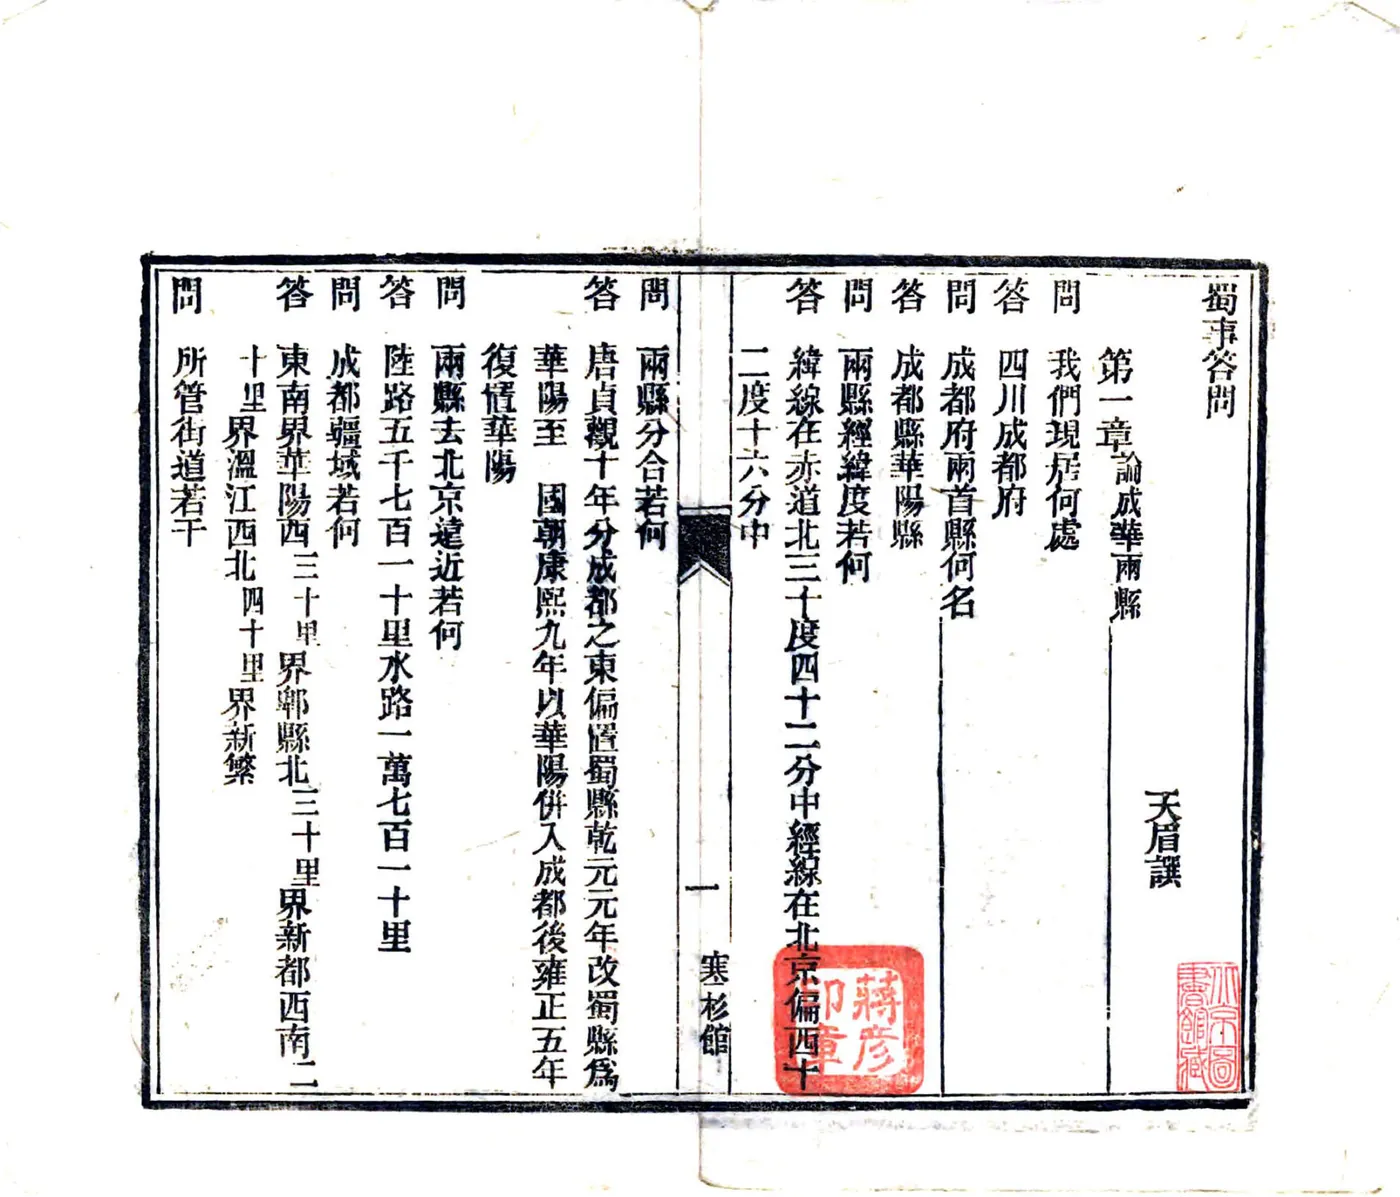 蜀事答問
天眉譔
第一章論成華兩縣
問 我們現居何處
答 四川成都府
問 成都府兩首縣何名
答 成都縣華陽縣
問 兩縣經緯度若何
答 緯線在赤道北三十度四十二分中經線在北京偏西十
二度十六分中
一
寒杉館
問 兩縣分合若何
答 唐貞觀十年分成都之東偏置蜀縣乾元元年改蜀縣為
華陽至 國朝康熙九年以華陽併入成都後雍正五年
復置華陽
問 兩縣去北京遠近若何
答 陸路五千七百一十里水路一萬七百一十里
問 成都疆域若何
答 東南界華陽西三十里界郫縣北三十里界新都西南二
十里界溫江西北四十里界新繁
問 所管街道若干
蔣彥
印章
北京圖
書館藏